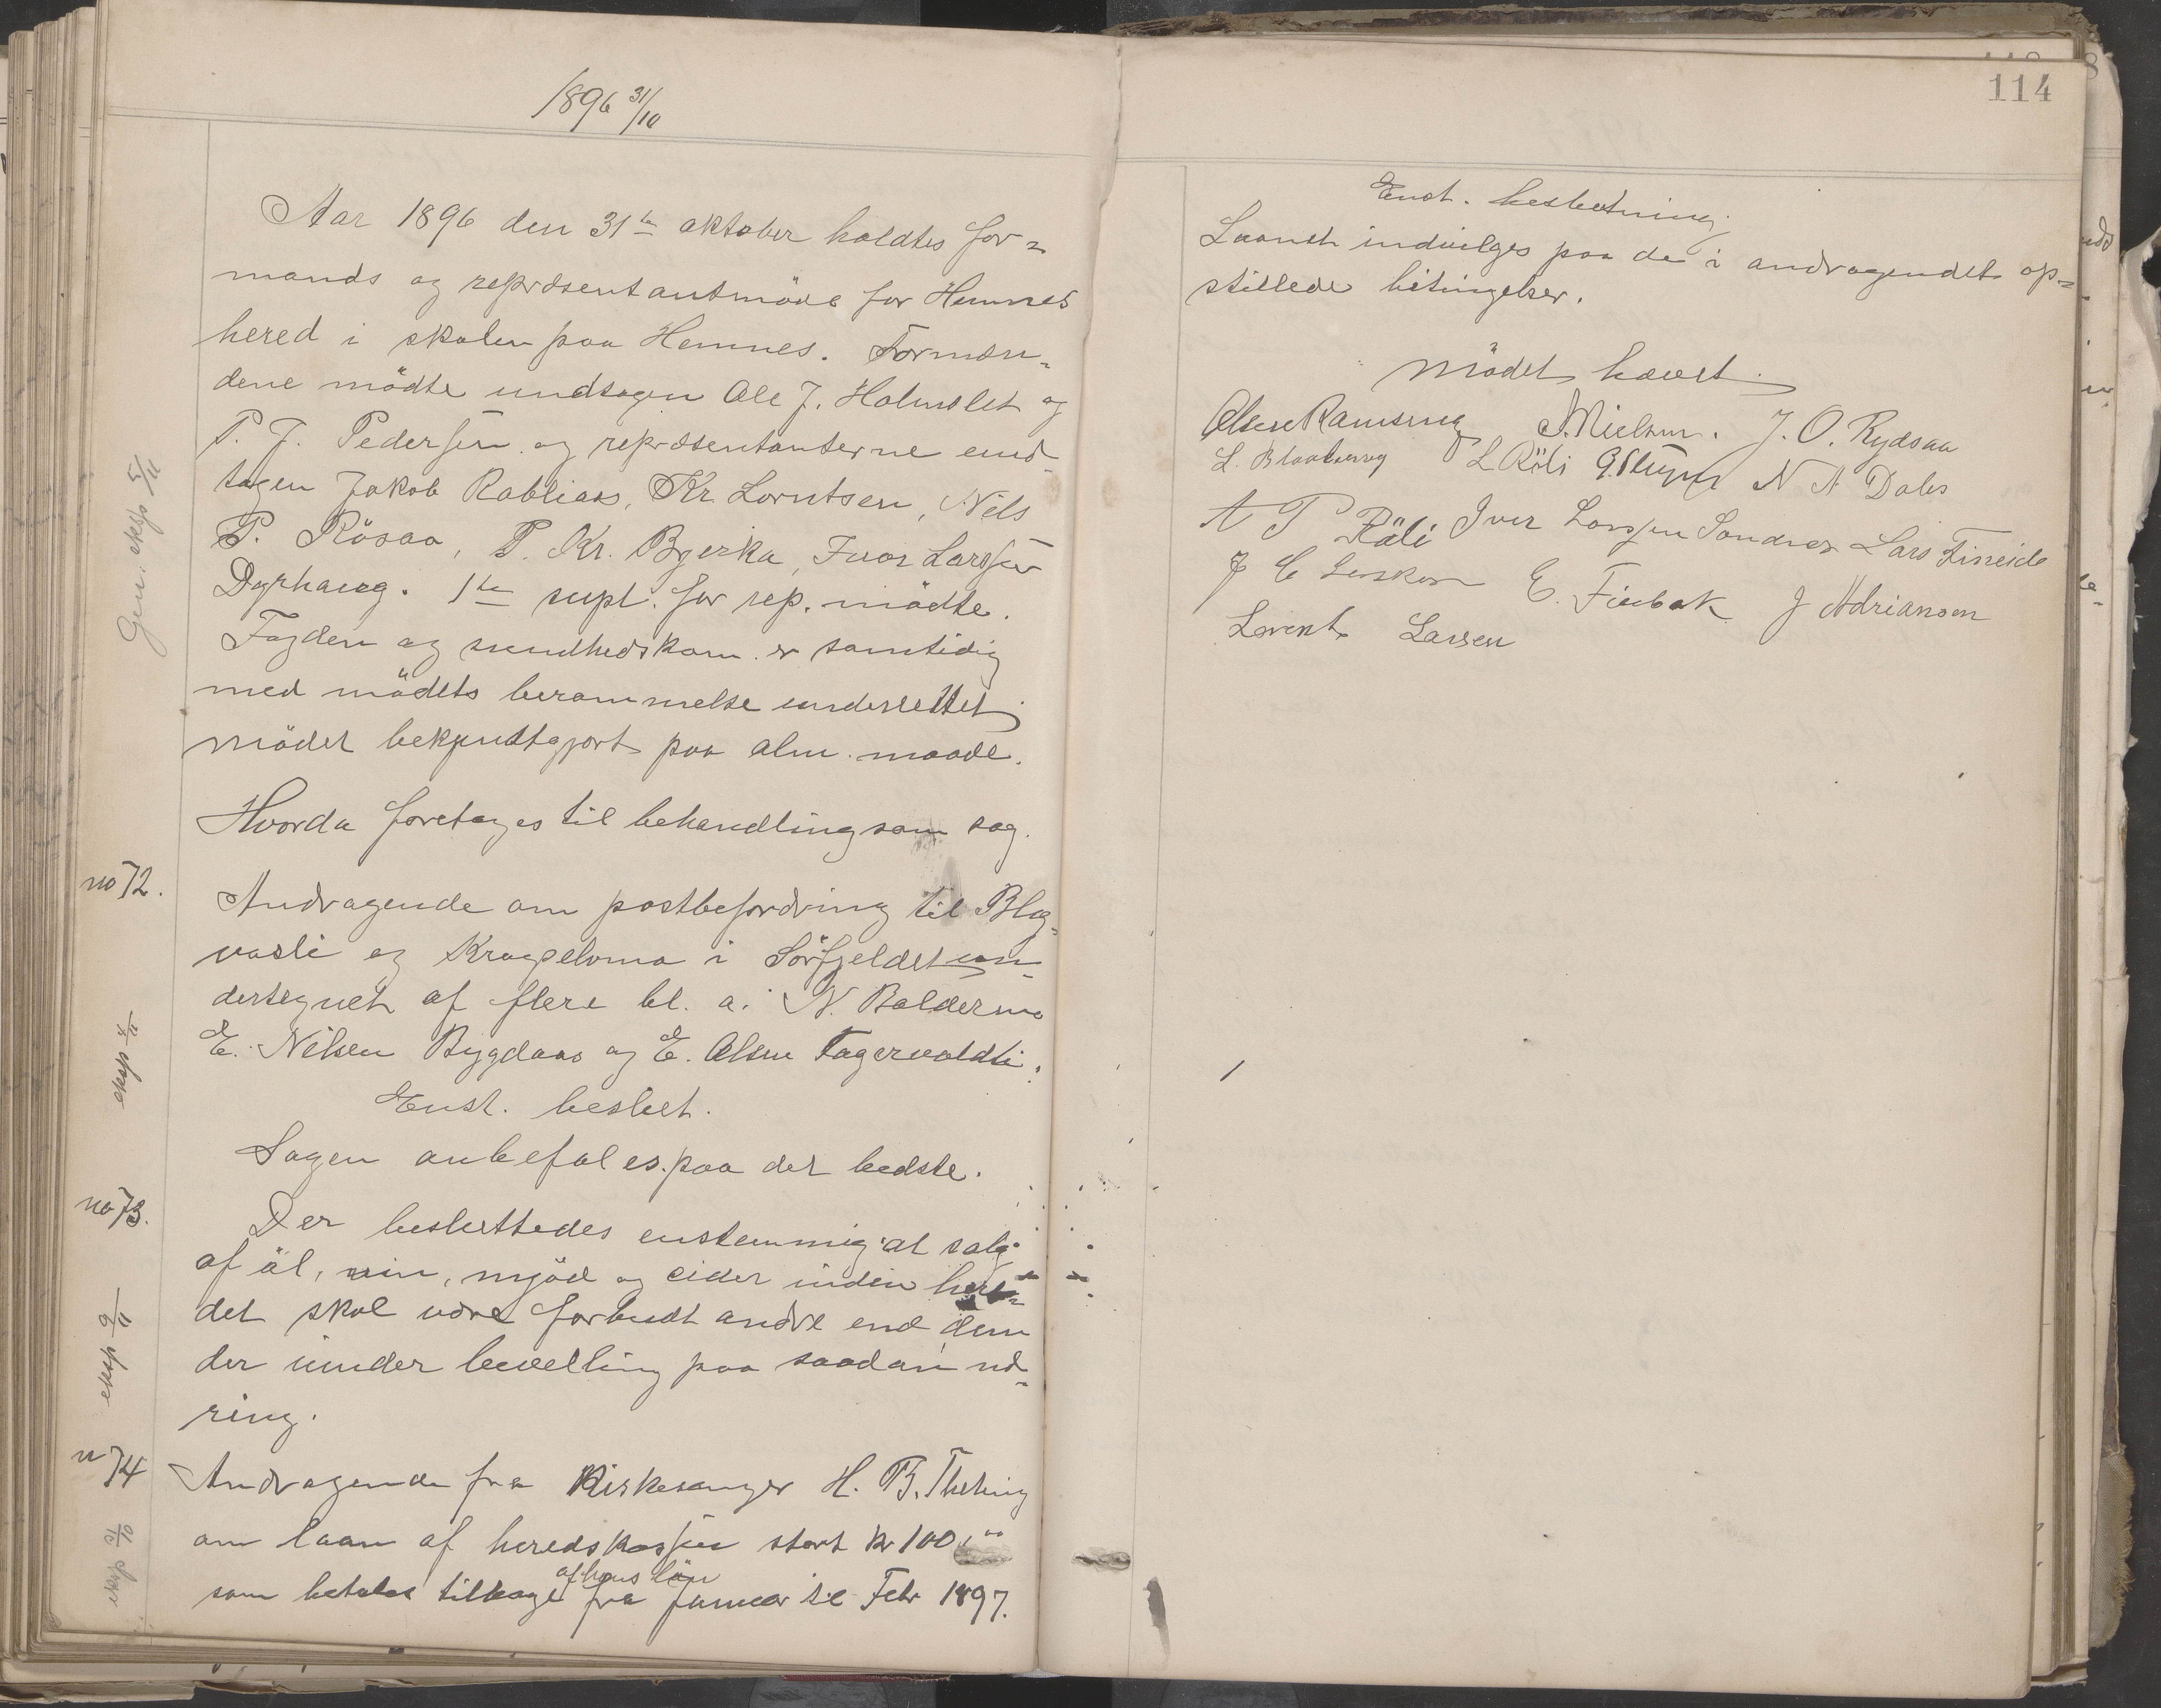 1896 31/10
Aar 1896 den 31te oktober holdtes for=
mands og repræsentantmöde for Hemnes
hered i skolen paa Hemnes. Formæn-
dene mödte undtagen Ole J. Holmslet og
P. J. Pedersen og repræsentanterne und-
tagen Jakob Rabliaas, Kr. Lorntsen, Nils
P. Rösaa, P. Kr. Bjerka, Ivar Larssen
Dyrhaug. 1te supl. for rep. mödte.
Fogden og sundhedskom. er samtidig
med mödets berammelse underrettet
mödet bekjendtgjort paa alm. maade.
Hvorda foretages til behandling som sag.
no 72.
Andragende om postbefordring til Bleg-
vasli og Krogelvmo i Sörfjeldet un-
dertegnet af flere bl. a. N. Baldermo
E. Nilsen Bygdaas og E. Olsen Fagervoldli.
Enst. beslut.
Sagen anbefales paa det bedste.
no 73.
Der besluttedes enstemmig at salg
af öl, vin, mjöd og cider inden here=
det skal være forbudt andre end dem
der vinder bevilling paa saadan næ-
ring.
no 74
Andragende fra Kirkesanger H. B. Thetring
om laan af heredskassen stort kr 100,00
af hans lön
som betales tilbage fra Januar til Febr 1897.
Gen. eksp 5/11
eksp 4/11
eksp 9/11
eksp 10/12
114
Enst. beslutning
Laanet indvilges paa de i andragendet op=
stillede betingelser.
Mödet hævet.
Olsen Ramsvig J. Nielsen. J. O. Rydsaa
L. Bleatverg L Röli N A Dales
A P Röli Iver Larssen Sandnes Lars Finneide
J C Leuskon E. Finbak J Adriansen
Lorents Larsen